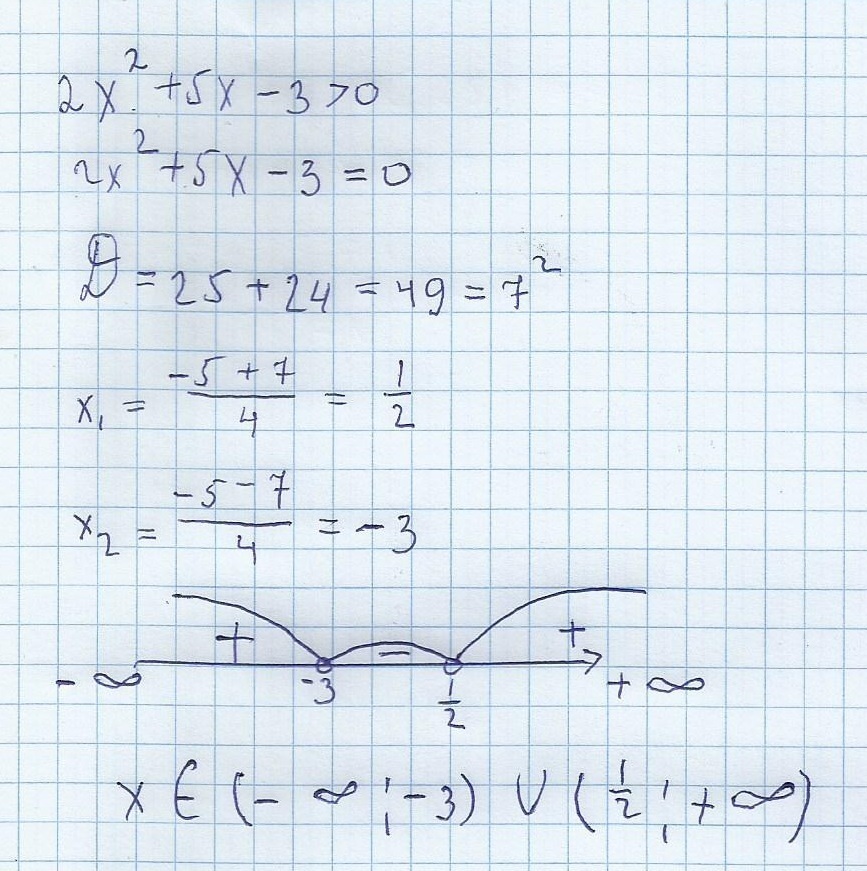 2x² + 5x - 3 > 0
2x² + 5x - 3 = 0
D = 25 + 24 = 49 = 7²
x₁ = (-5 + 7)/4 = 1/2
x₂ = (-5 - 7)/4 = -3
+ − +
-∞ -3 1/2 +∞
x ∈ (-∞; -3) ∪ (1/2; +∞)